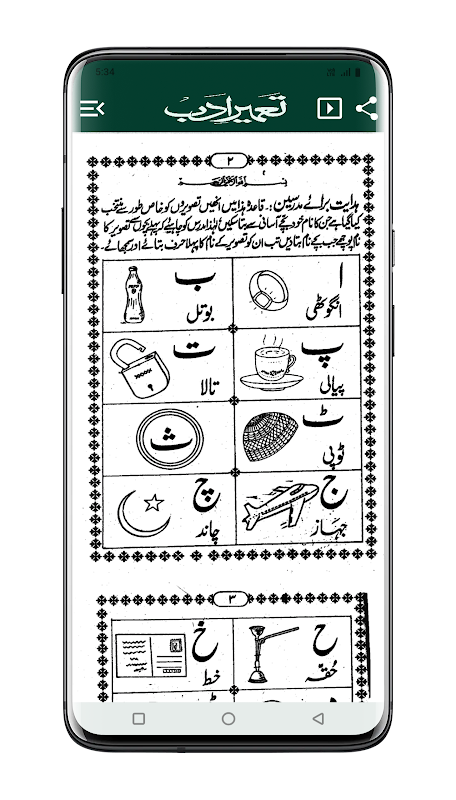 5:34
تعمیر ادب
۲
ہدایت برائے مدرسین :۔ قاعدہ ہذا میں انھیں تصویروں کو خاص طور سے منتخب
کیا گیا ہے جن کا نام خود بچے آسانی سے بتا سکیں لہٰذا مدرس کو چاہیئے کہ پہلے بچوں سے تصویر کا
نام پوچھے جب بچے نام بتا دیں تب ان کو تصویر کے نام کا پہلا حرف بتائے اور سمجھائے۔
ا ب
انگوٹھی بوتل
پ ت
پیالی تالا
ٹ ث
ٹوپی
ج چ
جہاز چاند
۳
ح خ
حقہ خط